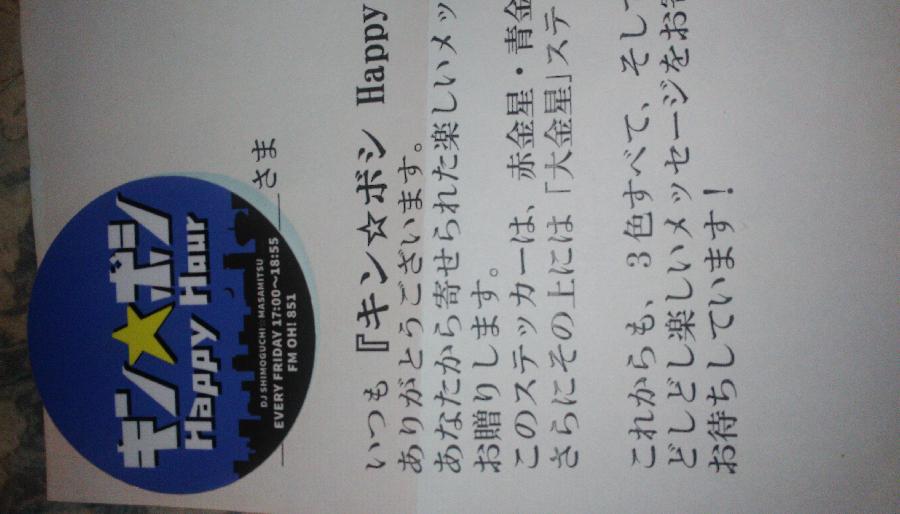 キン★ボシ
Happy Hour
DJ SHIMOGUCHI☆MASAMITSU
EVERY FRIDAY 17:00～18:55
FM OH! 851
さま
いつも 『キン☆ボシ Happy
ありがとうございます。
あなたから寄せられた楽しいメッ
お贈りします。
このステッカーは、赤金星・青金
さらにその上には「大金星」ステ
これからも、3色すべて、そして
どしどし楽しいメッセージをお寄
お待ちしています！